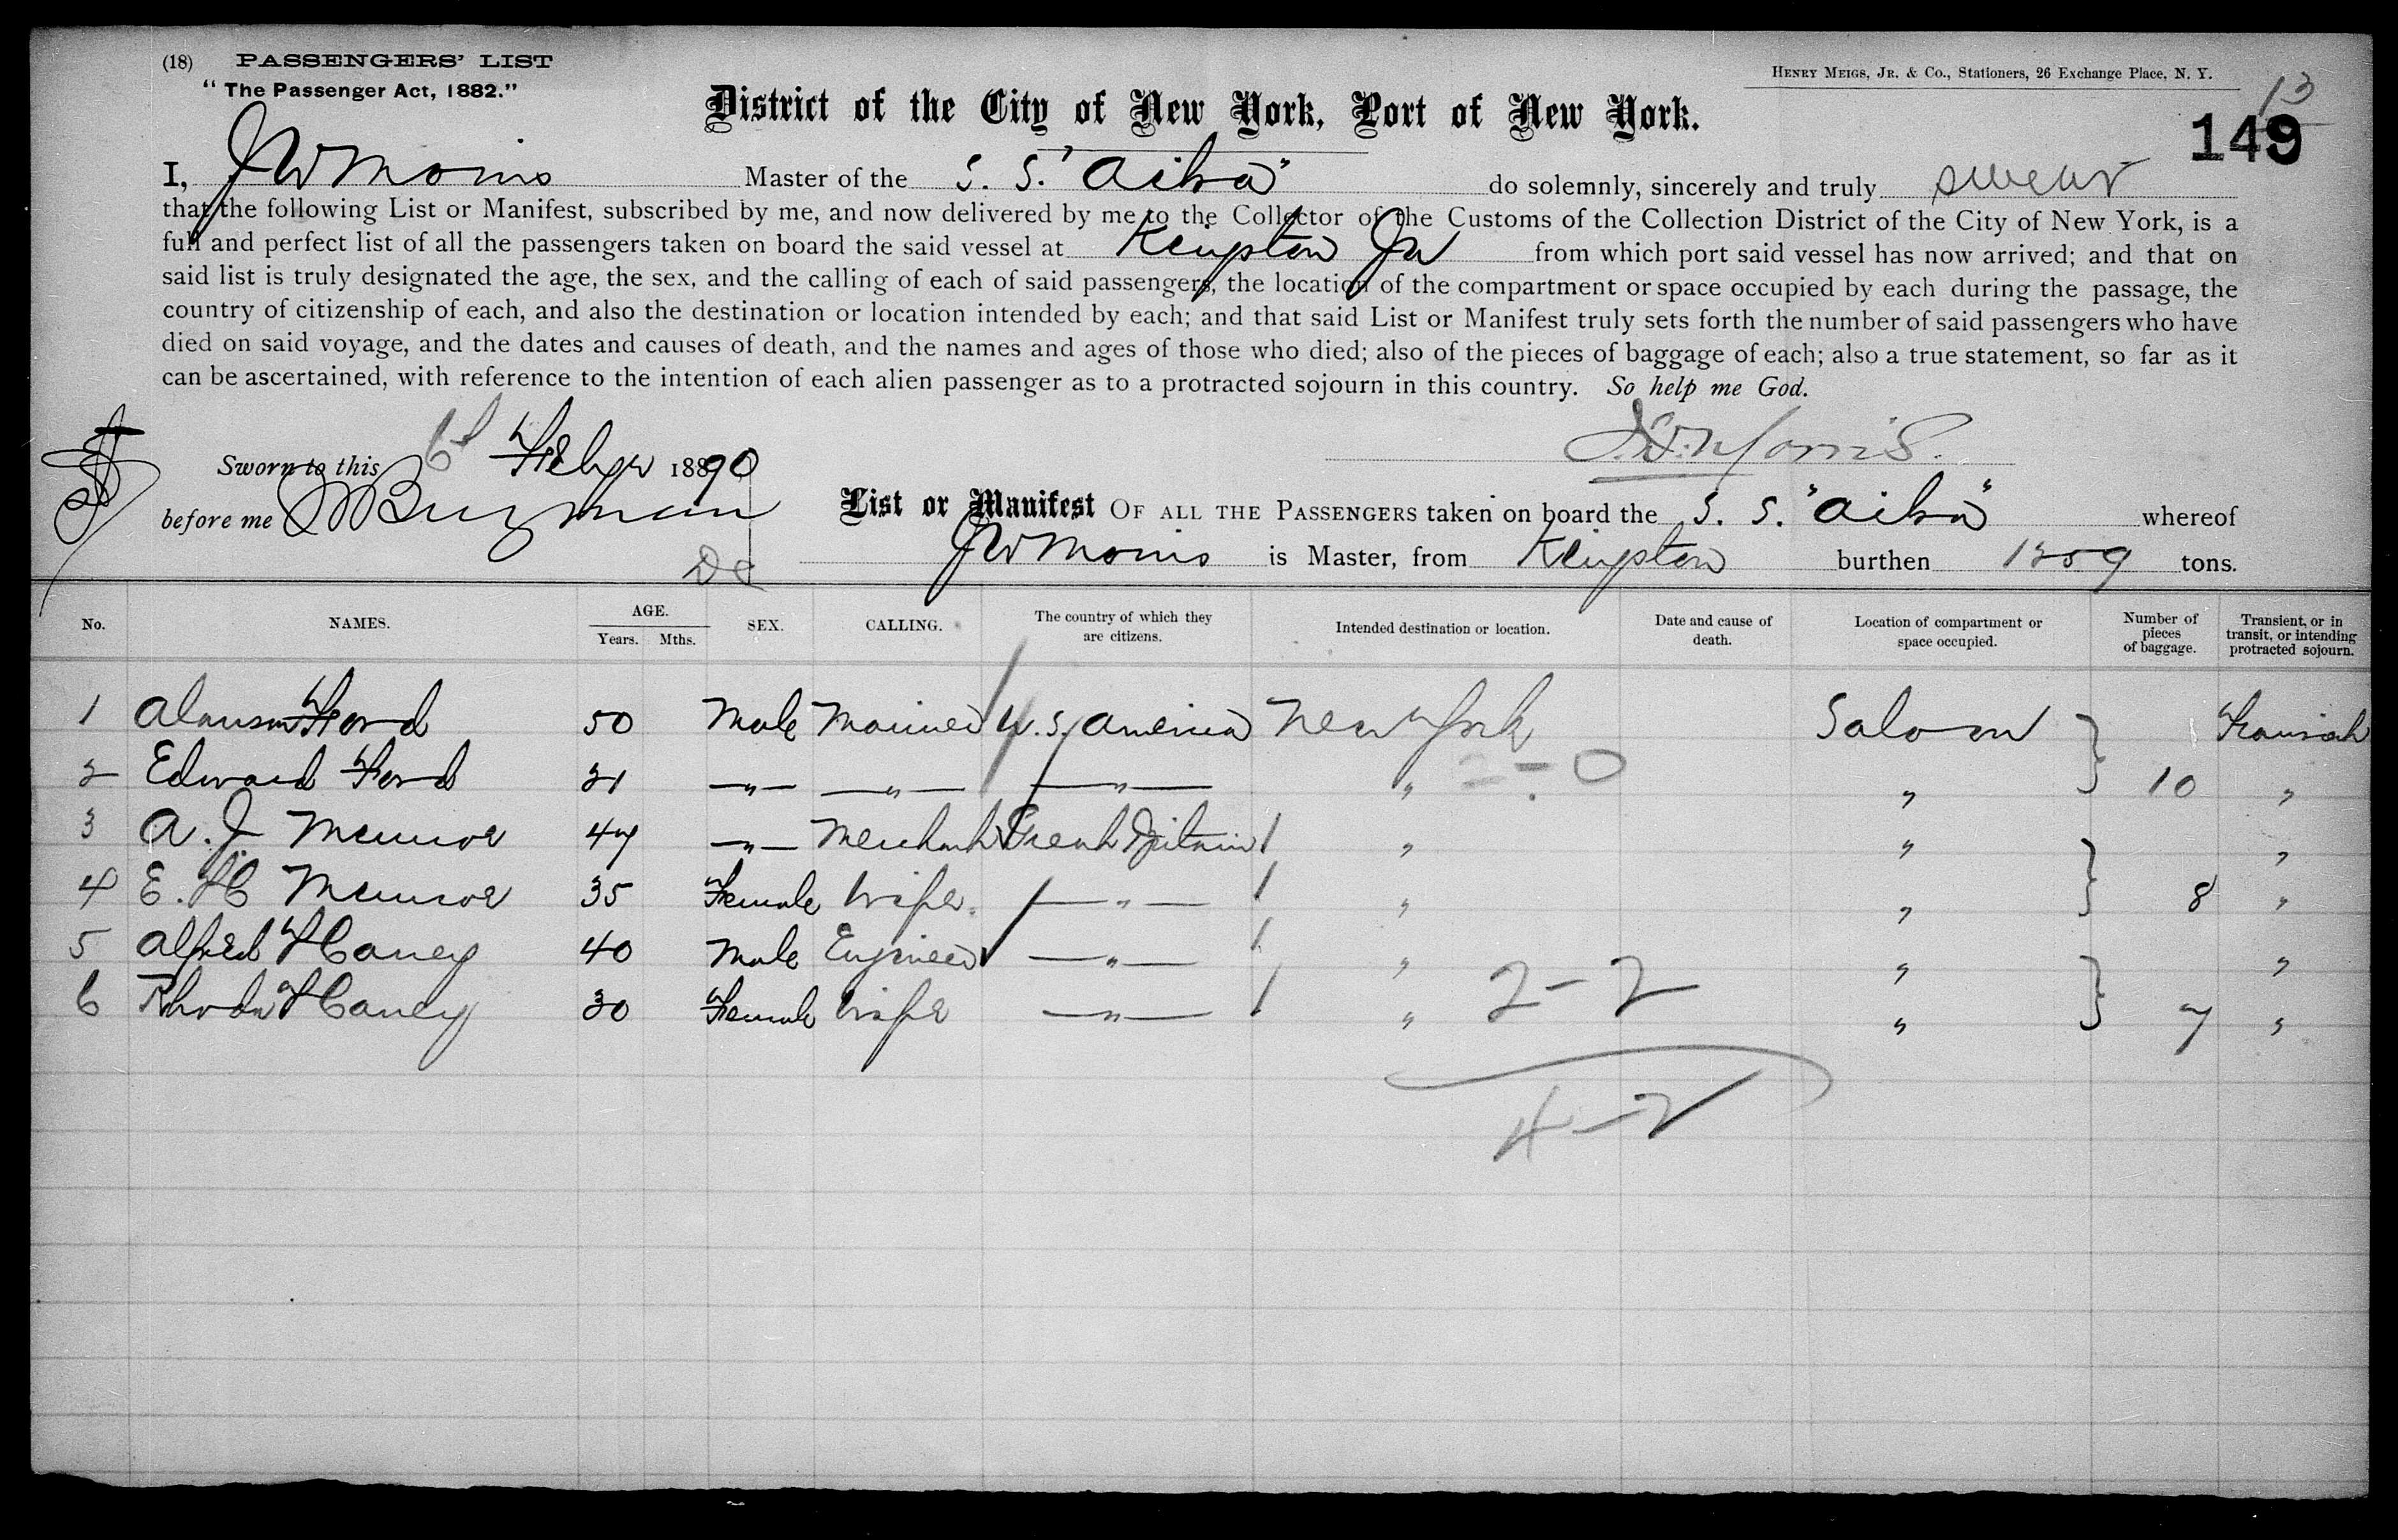 (18) PASSENGERS' LIST
"The Passenger Act, 1882."
HENRY MEIGS, JR. & CO., Stationers, 26 Exchange Place, N. Y.
13
District of the City of New York, Port of New York.
149
I, J W Morris Master of the S. S. do solemnly, sincerely and truly swear
that the following List or Manifest, subscribed by me, and now delivered by me to the Collector of the Customs of the Collection District of the City of New York, is a
full and perfect list of all the passengers taken on board the said vessel at Kingston Ja from which port said vessel has now arrived; and that on
said list is truly designated the age, the sex, and the calling of each of said passengers, the location of the compartment or space occupied by each during the passage, the
country of citizenship of each, and also the destination or location intended by each; and that said List or Manifest truly sets forth the number of said passengers who have
died on said voyage, and the dates and causes of death, and the names and ages of those who died; also of the pieces of baggage of each; also a true statement, so far as it
can be ascertained, with reference to the intention of each alien passenger as to a protracted sojourn in this country. So help me God.
J. W. Morris.
Sworn to this 6th 1890
before me
List or Manifest OF ALL THE PASSENGERS taken on board the S. S. whereof
J W Morris is Master, from Kingston burthen 1259 tons.
No. NAMES. AGE. Years. Mths. SEX. CALLING. The country of which they are citizens. Intended destination or location. Date and cause of death. Location of compartment or space occupied. Number of pieces of baggage. Transient, or in transit, or intending protracted sojourn.
1 Alanson Ford 50 Male Mariner U. S. America New York Saloon Transient
2 Edward Ford 21 —"— —"— —"— " 2-0 " } 10 "
3 A. J 47 —"— Merchant Great Britain " " "
4 E. 35 Female Wife —"— " " } 8 "
5 Alfred 40 Male Engineer —"— " " "
6 Rhoda 30 Female Wife —"— " 2-2 " } 7 "
4-2